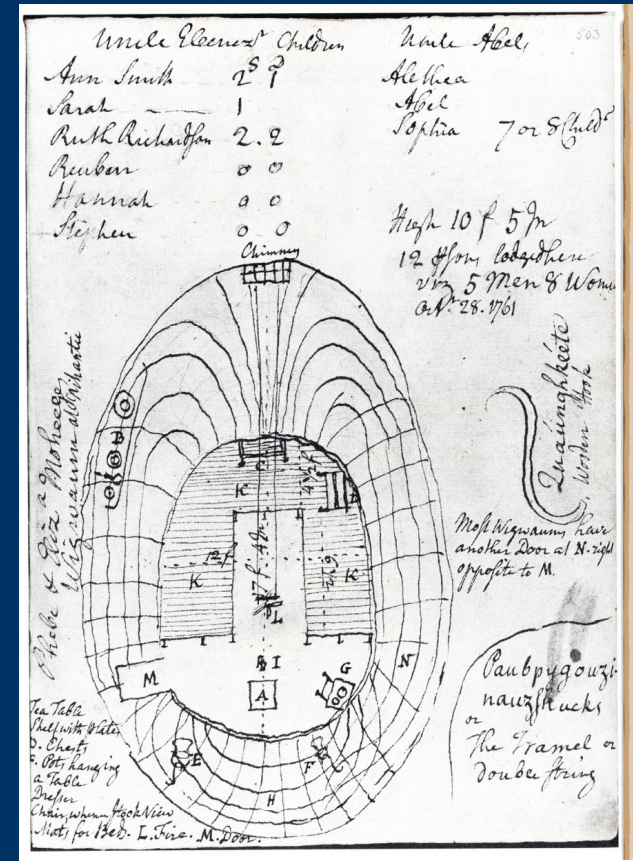 503
Uncle Eleenezr Children
Ann Smith 2 S 1 D
Sarah 1
Ruth Richardson 2. 2
Reuben 0 0
Hannah 0 0
Stephen 0 0
Uncle Abel,
Alethea
Abel
Sophia 7 or 8 Childn
High 10 f 5 In
12 lodged here
viz 5 Men & Women
Octr. 28. 1761
Chimney
B
C
K
4½ f
D
K
12 f
17 f. 4 In
2 f 9
K
L
I
A
G
M
N
E
F
H
Phebe & Eliz a Moheegs
Wigwaum at Niphantic
Quaiinghkeete
Wooden Hook
Most Wigwaums have
another Door at N. right
opposite to M.
Paubpygouzi-
nauzhucks
or
the Tramel or
double string
Tea Table
Shelf with Plates
D. Chests
F. Pot, hanging
a Table
Dresser
Chair, where I took View
Mats for Bed. L. Fire. M. Door.